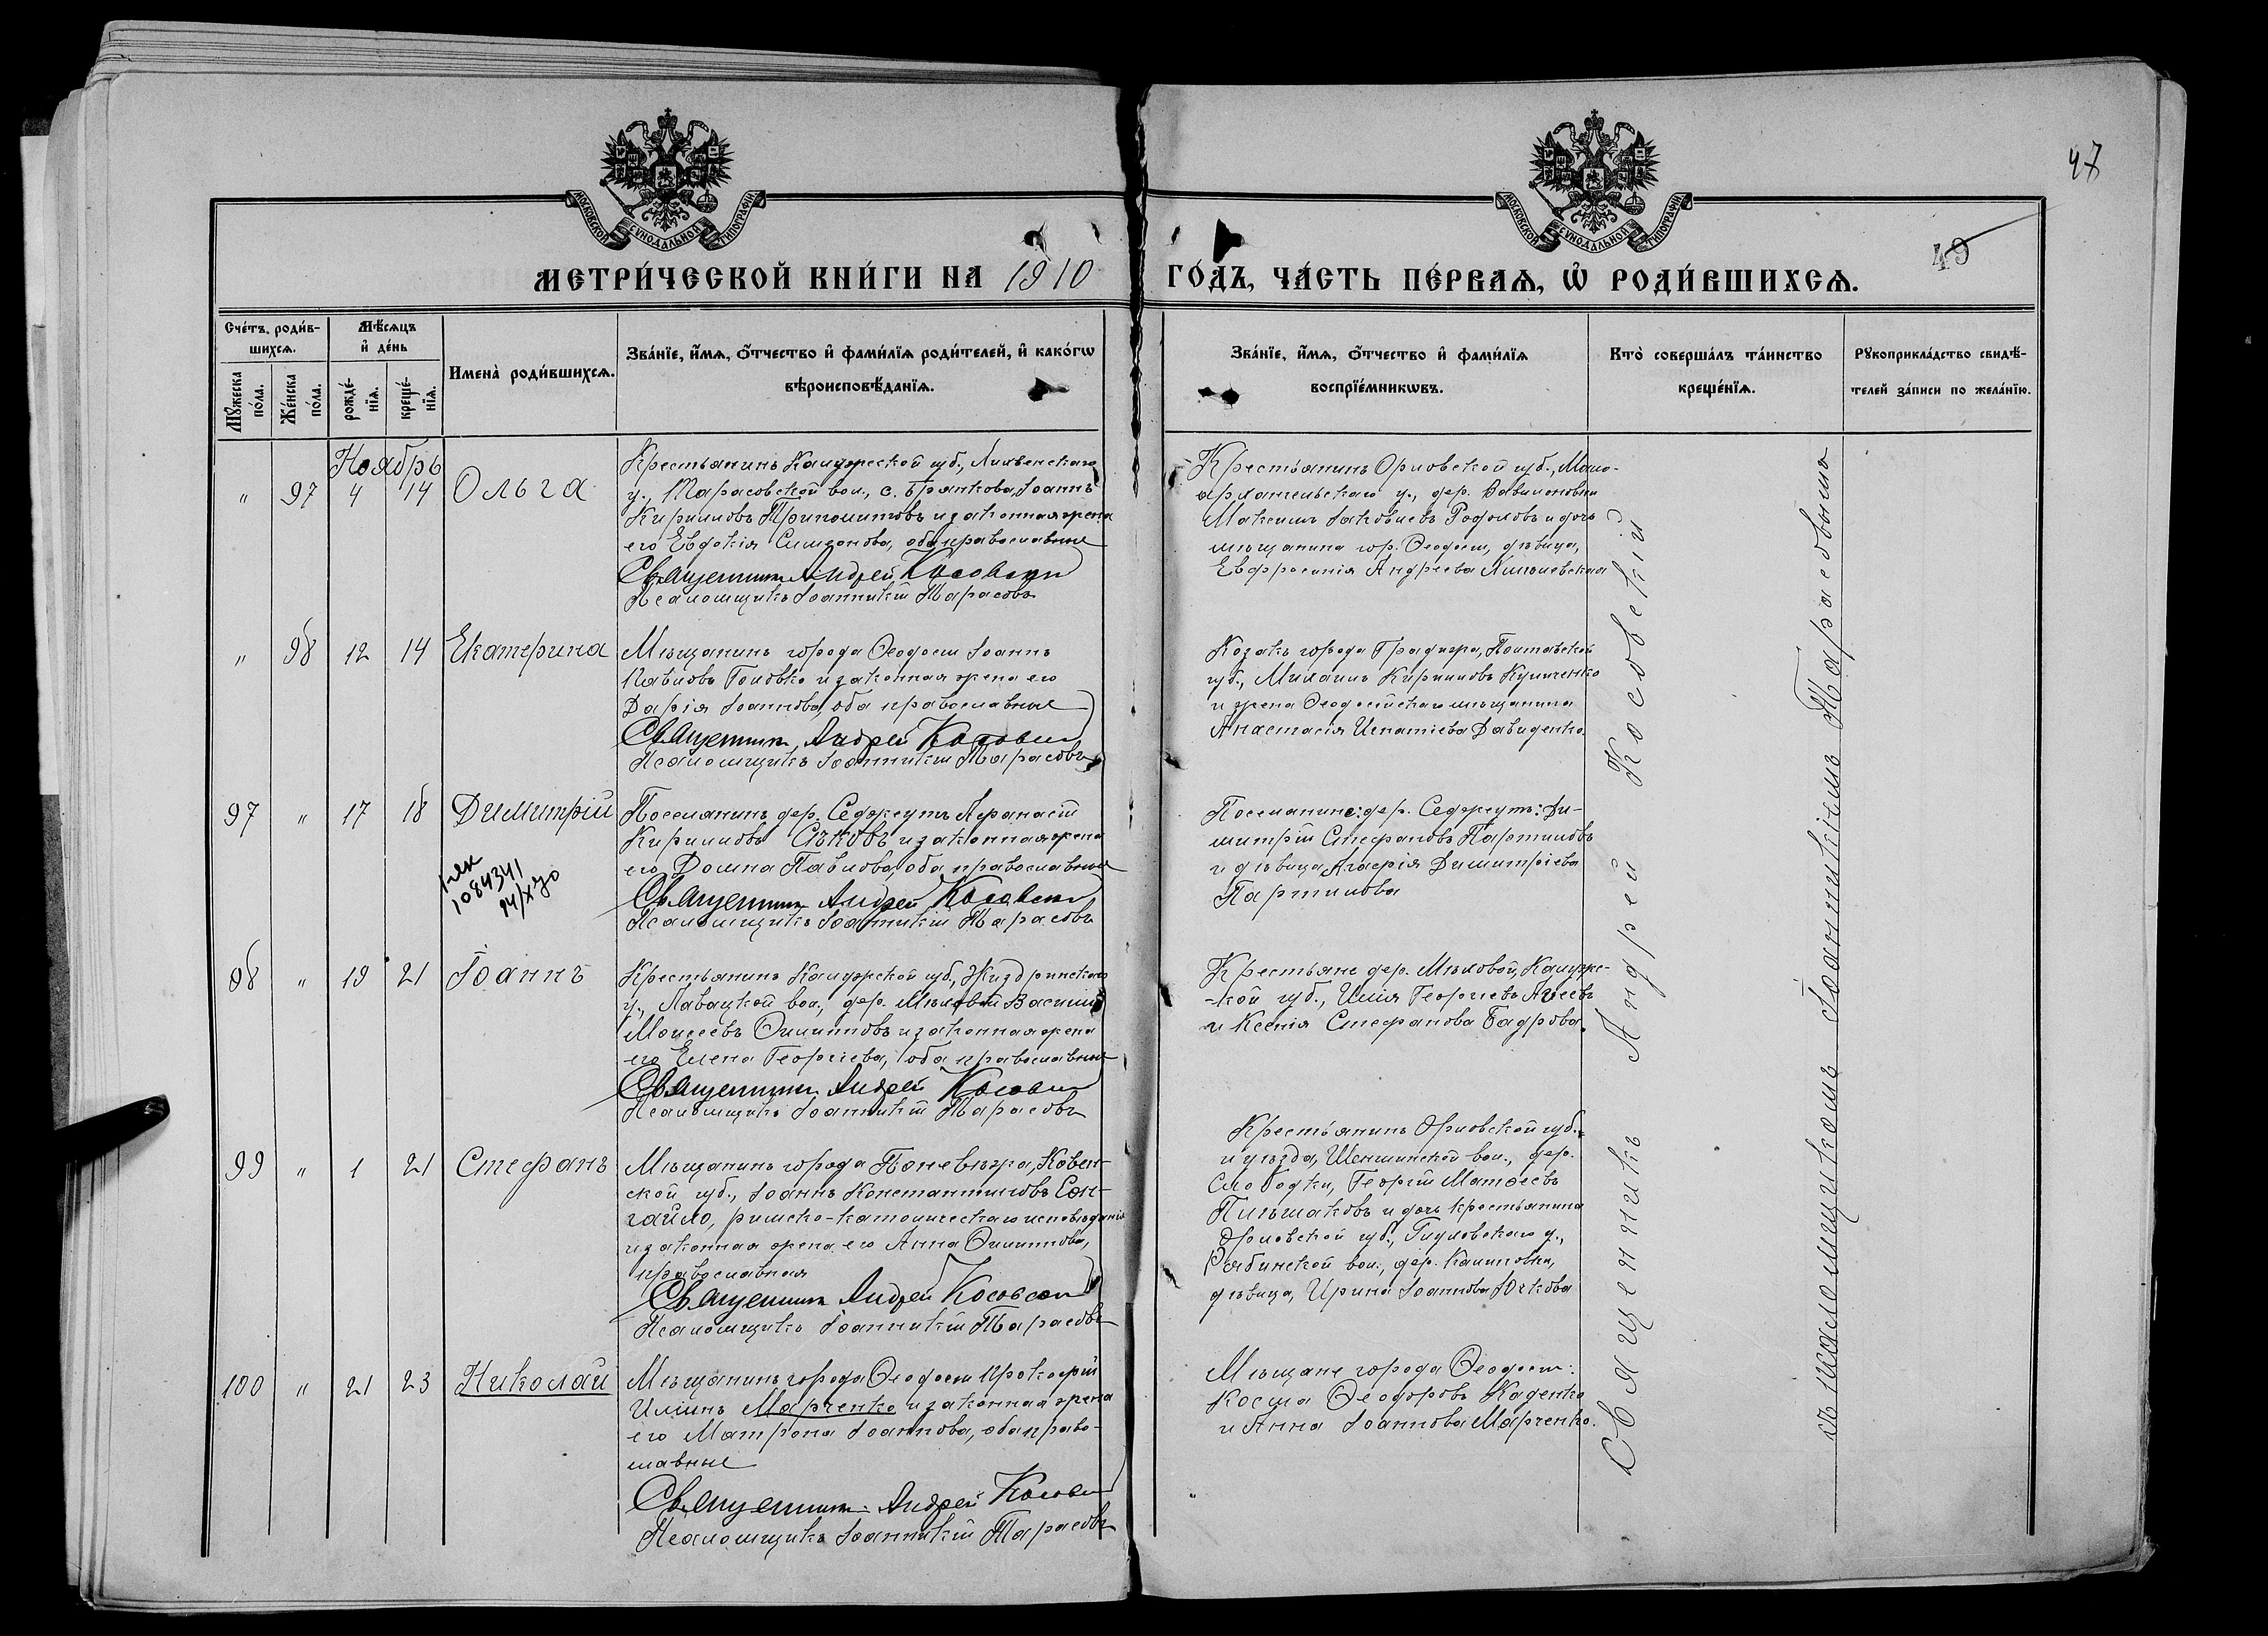 МОСКОВСКОЙ СѴНОДАЛЬНОЙ ТИПОГРАФІИ
МОСКОВСКОЙ СѴНОДАЛЬНОЙ ТИПОГРАФІИ
47
49
МЕТРИ́ЧЕСКОЙ КНИ́ГИ НА 1910 ГО́ДЪ, ЧА́СТЬ ПЕ́РВАѦ, Ѽ РОДИ́ВШИХСѦ.
Сче́тъ роди́в-
шихсѧ.
Мѣ́сѧцъ
и҆ де́нь
Мꙋ́жеска
по́ла.
Же́нска
по́ла.
рожде́-
нїѧ.
креще́-
нїѧ.
Имена̀ роди́вшихсѧ.
Зва́нїе, и҆́мѧ, ѻ҆́тчество и҆ фами́лїѧ роди́телей, и҆ како́гѡ
вѣроисповѣ́данїѧ.
Зва́нїе, и҆́мѧ, ѻ҆́тчество и҆ фами́лїѧ
воспрїе́мникѡвъ.
Кто̀ соверша́лъ та́инство
креще́нїѧ.
Рꙋкоприкла́дство свидѣ́-
телей за́писи по жела́нїю.
Ноябрь
" 97 4 14 Ольга
Крестьянинъ Калужской губ., Лихвинскаго
у., Тарасовской вол., с. Брянкова, Іоаннъ
Кирилловъ Триполитовъ и законная жена
его Евдокія Симеонова, оба православные
Священникъ Андрей Косовскій
Псаломщикъ Іоанникій Тарасовъ
Крестьянинъ Орловской губ., Мало-
архангельскаго у., дер. Вавилоновки
Максимъ Іаковлевъ Родоновъ и дочь
мѣщанина гор. Ѳеодосіи, дѣвица,
Евфросинія Андреева
" 98 12 14 Екатерина
Мѣщанинъ города Ѳеодосіи Іоаннъ
Павловъ Головко и законная жена его
Дарія Іоаннова, оба православные
Священникъ Андрей Косовскій
Псаломщикъ Іоанникій Тарасовъ
Козакъ города Градижа, Полтавской
губ., Михаилъ Кирилловъ Куличенко
и жена Ѳеодосійскаго мѣщанина
Анастасія Игнатіева Давиденко.
97 " 17 18 Димитрій
1084341
Поселянинъ дер. Седжеутъ Аѳанасій
Кирилловъ Сѣковъ и законная жена
его Домна Павлова, оба православные
Священникъ Андрей Косовскій
Псаломщикъ Іоанникій Тарасовъ
Поселянине: дер. Седжеутъ: Ди-
митрій Стефановъ Партиловъ
и дѣвица Агаѳія Димитріева
Партилова
98 " 19 21 Іоаннъ
Крестьянинъ Калужской губ., Жиздринскаго
у., Лавацкой вол., дер. Мѣловой Василій
Моисеевъ Филипповъ и законная жена
его Елена Георгіева, оба православные
Священникъ Андрей Косовскій
Псаломщикъ Іоанникій Тарасовъ
Крестьяне дер. Мѣловой, Калужс-
-кой губ., Илія Георгіевъ Агеевъ
и Ксенія Стефанова Бадрова.
99 " 1 21 Стефанъ
Мѣщанинъ города Поневѣжа, Ковен-
ской губ., Іоаннъ Константиновъ Сон-
гайло, римско-католическаго исповѣданія
и законная жена его Анна Филиппова,
православная
Священникъ Андрей Косовскій
Псаломщикъ Іоанникій Тарасовъ
Крестьянинъ Орловской губ.
и уѣзда, Шеншинской вол., дер.
Слободки, Георгій Матѳеевъ
Пильщаковъ и дочь крестьянина
Орловской губ., у.,
Рябинской вол., дер. Калиновки,
дѣвица, Ирина Іоаннова Юткова
100 " 21 23 Николай
Мѣщанинъ города Ѳеодосіи Прокофій
Иліинъ Марченко и законная жена
его Матрона Іоаннова, оба право-
славные
Священникъ Андрей Косовскій
Псаломщикъ Іоанникій Тарасовъ
Мѣщане города Ѳеодосіи:
Косма Ѳеодоровъ Каденко
и Анна Іоаннова Марченко.
Священникъ Андрей Косовскій
съ псаломщикомъ Іоанникіемъ Тарасовымъ